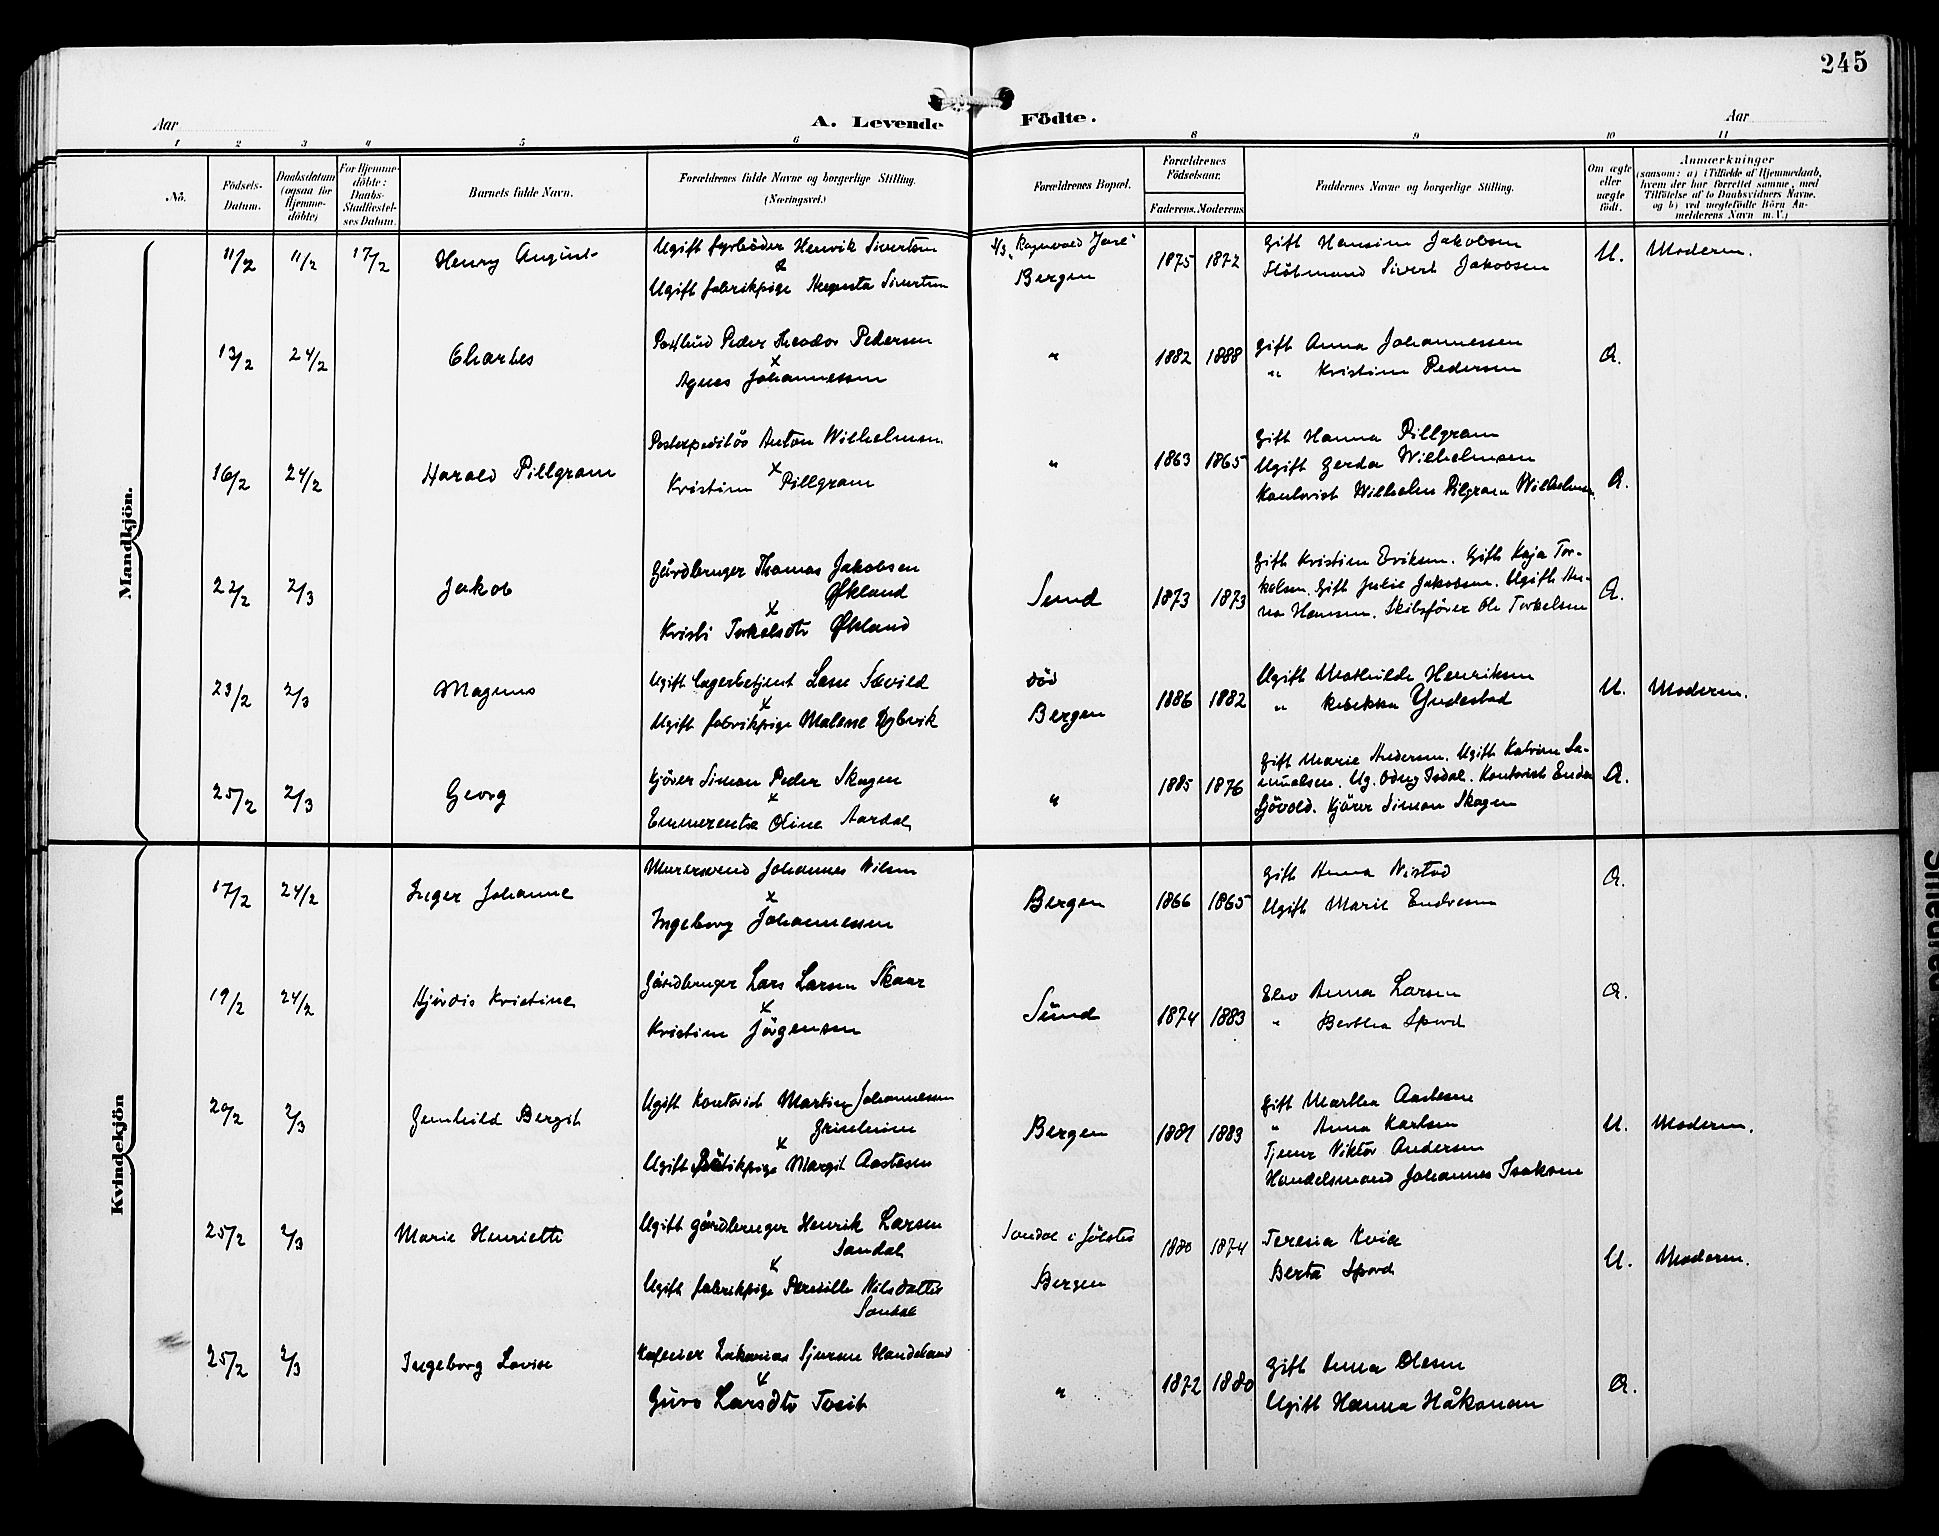 245
Aar
A. Levende Födte.
Aar
1 2 3 4 5 6 8 9 10 11
No.
Födsels-
Datum.
Daabsdatum
(ogsaa for
Hjemme-
döbte)
For Hjemme-
döbte:
Daabs-
Stadfæstel-
ses Datum.
Barnets fulde Navn.
Forældrenes fulde Navne og borgerlige Stilling.
(Næringsvei.)
Forældrenes Bopæl.
Forældrenes
Födselsaar.
Faderens. Moderens
Faddernes Navne og borgerlige Stilling.
Om ægte
eller
uægte
født.
Anmærkninger
(saasom: a) i Tilfælde af Hjemmedaab,
hvem der har forrettet samme, med
Tilføielse af to Daabsvidners Navne,
og b) ved uægtefødte Börn An-
melderens Navn m. V.)
Mandkjön.
11/2 11/2 17/2 Henry August
Ugift fyrböder Henrik Sivertsen
x
Ugift fabrikpige Augusta Sivertsen
"Ragnvald Jarl"
Bergen
1875 1872
Gift Hansine Jakobsen
Sivert Jakobsen
U. Moderen.
13/2 24/2 Charles
Postbud Peder Theodor Pedersen
x
Agnes Johannessen
" 1882 1888
Gift Anna Johannessen
" Kristine Pedersen
A.
16/2 24/2 Harald Pillgram
Postexpeditör Anton Wilhelmsen
x
Kristine Pillgram
" 1863 1865
Gift Hanna Pillgram
Ugift Gerda Wilhelmsen
Kontorist Wilhelm Pilgram Wilhelmsen
A.
22/2 2/3 Jakob
Gårdbruger Thomas Jakobsen
Økland
x
Kristi Torkelsdtr Økland
Sund 1873 1873
Gift Kristine Eriksen. Gift Kaja Tor-
kelsen. Gift Julie Jakobsen. Ugift An-
na Hansen. Skibsförer Ole Torkelsen
A.
23/2 2/3 Magnus
Ugift lagerbetjent Lasse Sævild
x
Ugift fabrikpige Malene Dybvik
död
Bergen
1886 1882
Ugift Mathilde Henriksen
" Rebekka Yndestad
U. Moderen.
25/2 2/3 Georg
Kjörer Simon Peder Skagen
x
Emmerentse Oline Aardal
" 1885 1876
Gift Marie Andersen. Ugift Katrine Sa-
muelsen. Ug. Odny Isdal. Kontorist Endre
Sjövold. Kjörer Simon Skagen
A.
Kvindekjön
17/2 24/2 Inger Johanne
Murersvend Johannes Nilsen
x
Ingeborg Johannessen
Bergen 1866 1865
Gift Anna Nistad
Ugift Marie Endresen
A.
19/2 24/2 Hjördis Kristine
Gårdbruger Lars Larsen Skaar
x
Kristine Jörgensen
Sund 1874 1883
Elev Anna Larsen
" Bertha Spord
A.
20/2 2/3 Gunhild Bergit
Ugift Kontorist Martin Johannessen
Grindheim
x
Ugift fabrikpige Margit Aastesen
Bergen 1881 1883
Gift Martha Aastesen
" Anna Karlsen
Tjener Viktor Andersen
Handelsmand Johannes Isaksen
U. Moderen.
25/2 2/3 Marie Henriette
Ugift gårdbruger Henrik Larsen
Sandal
x
Ugift fabrikpige Pernille Nilsdatter
Sandal
Sandal i Jölster
Bergen
1880 1874
Teresia Kvie
Berta Spord
U. Moderen.
25/2 2/3 Ingeborg Lovise
Zakarias Sjursen Handeland
x
Guro Larsdtr Tveit
" 1872 1880
Gift Anna Olesen
Ugift Hanna Håkonsen
A.